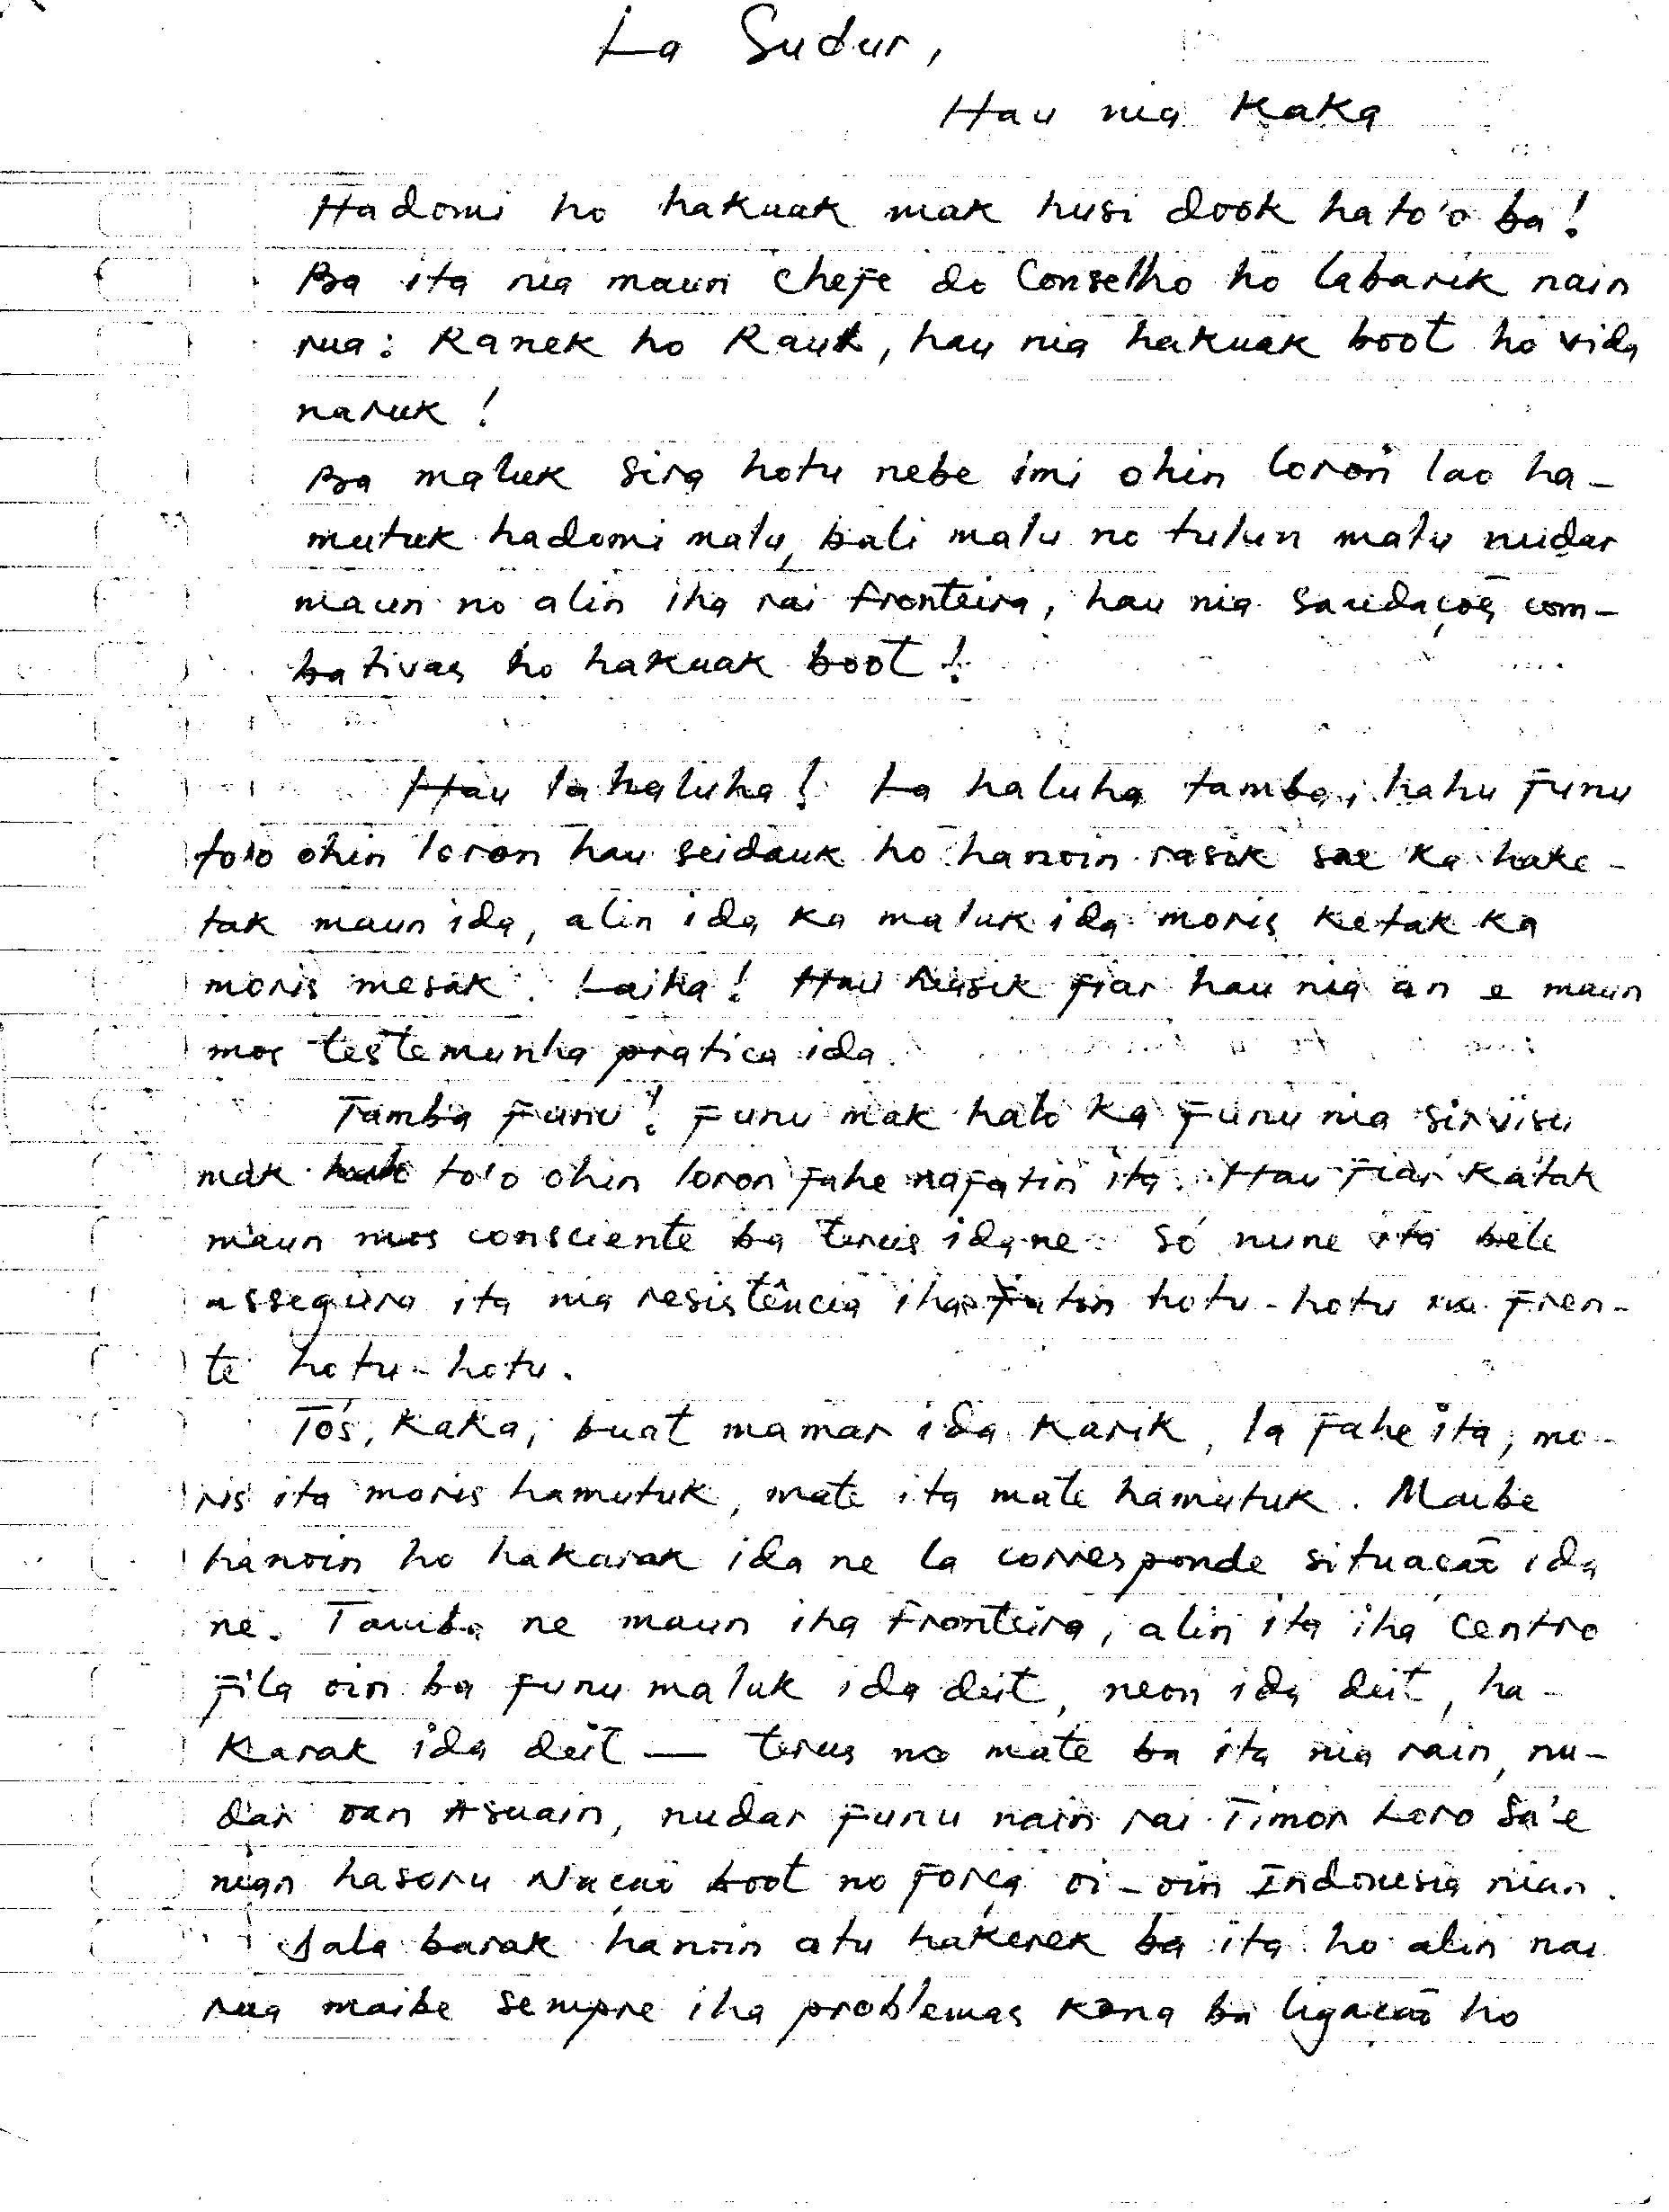 La Sudur,
Hau nia Kaka
Hadomi ho hakuak mak husi dook hato'o ba!
Ba ita nia maun Chefe do Conselho ho labarik nain
rua: Ranek ho Rauk, hau nia hakuak boot ho vida
naruk!
Ba maluk sira hotu nebe imi ohin loron lao ha-
mutuk hadomi malu, bali malu no tulun malu nudar
maun no alin iha rai fronteira, hau nia saudaçoẽs com-
bativas ho hakuak boot!
Hau la haluha! La haluha tamba, hahu funu
to'o ohin loron hau seidauk ho hanoin rasik sae ka hake-
tak maun ida, alin ida ka maluk ida moris ketak ka
moris mesak. Laiha! Hau rasik fiar hau nia an e maun
mos testemunha pratica ida.
Tamba funu! Funu mak halo ka funu nia sirvisu
mak to'o ohin loron fahe nafatin ita. Hau fiar katak
maun mos consciente ba terus ida ne. Só nune ita bele
assegura ita nia resistência iha fatin hotu-hotu na fren-
te hotu-hotu.
Tós, Kaka, buat mamar ida karik, la fahe ita, mo-
ris ita moris hamutuk, mate ita mate hamutuk. Maibe
hanoin ho hakarak ida ne la corresponde situacão ida
ne. Tamba ne maun iha fronteira, alin ita iha centro
fila oin ba funu maluk ida deit, neon ida deit, ha-
karak ida deit — terus no mate ba ita nia rain, nu-
dar oan Asuain, nudar funu nain rai Timor Loro Sa'e
nian hasoru Nação boot no força oi-oin Indonesia nian.
Sala barak hanoin atu hakerek ba ita ho alin nai
rua maibe sempre iha problemas kona ba ligacão ho